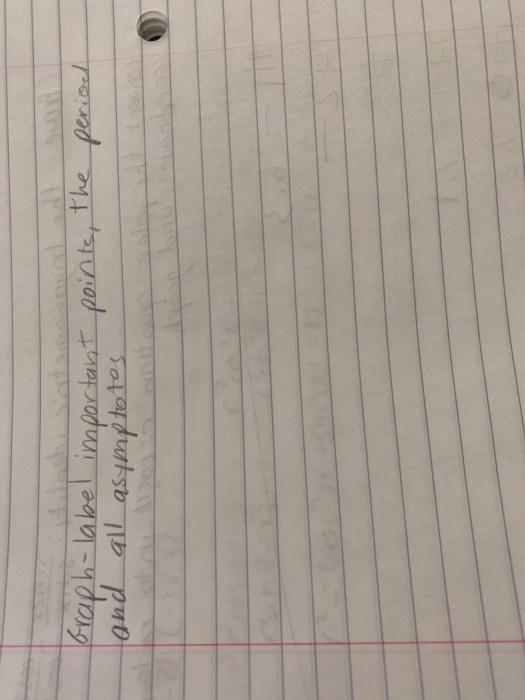 Graph-label important points, the period
and all asymptotes